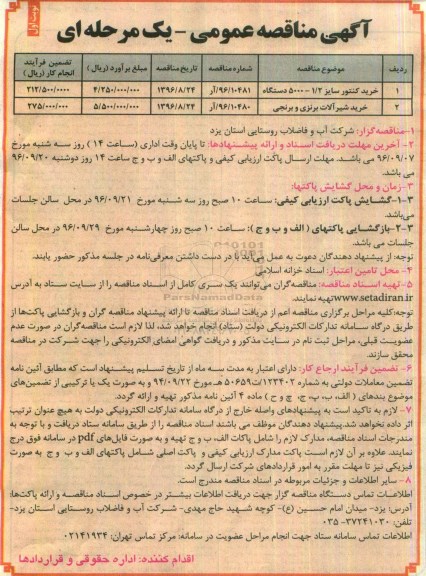 نوبت اول
آگهی مناقصه عمومی - یک مرحله ای
ردیف | موضوع مناقصه | شماره مناقصه | تاریخ مناقصه | مبلغ برآورد (ریال) | تضمین فرآیند انجام کار (ریال)
۱ | خرید کنتور سایز ۱/۲ - ۵۰۰۰ دستگاه | ۹۶/۱۰۴۸۱/آر | ۱۳۹۶/۸/۲۴ | ۴/۲۵۰/۰۰۰/۰۰۰ | ۲۱۲/۵۰۰/۰۰۰۰
۲ | خرید شیرآلات برنزی و برنجی | ۹۶/۱۰۴۸۰/آر | ۱۳۹۶/۸/۲۴ | ۵/۵۰۰/۰۰۰/۰۰۰ | ۲۷۵/۰۰۰/۰۰۰
۱- مناقصه گزار: شرکت آب و فاضلاب روستایی استان یزد
۲- آخرین مهلت دریافت اسناد و ارائه پیشنهادها: تا پایان وقت اداری (ساعت ۱۴ ) روز سه شنبه مورخ
۹۶/۰۹/۰۷ می باشد. مهلت ارسال پاکت ارزیابی کیفی و پاکتهای الف و ب و ج ساعت ۱۴ روز دوشنبه ۹۶/۰۹/۲۰
می باشد.
۳- زمان و محل گشایش پاکتها:
۳-۱- گشایش پاکت ارزیابی کیفی: ساعت ۱۰ صبح روز سه شنبه مورخ ۹۶/۰۹/۲۱ در محل سالن جلسات
می‌باشد.
۳-۲- بازگشایی پاکتهای ( الف و ب و ج ): ساعت ۱۰ صبح روز چهارشنبه مورخ ۹۶/۰۹/۲۹ در محل سالن
جلسات می باشد.
توجه: از پیشنهاد دهندگان دعوت به عمل می‌آید با در دست داشتن معرفی‌نامه در جلسه مذکور حضور یابند.
۴- محل تامین اعتبار: اسناد خزانه اسلامی
۵- تهیه اسناد مناقصه: مناقصه گران می‌توانند یک سری کامل از اسناد مناقصه را از سایت ستاد به آدرس
www.setadiran.ir تهیه نمایند.
توجه: کلیه مراحل برگزاری مناقصه اعم از دریافت اسناد مناقصه تا ارائه پیشنهاد مناقصه گران و بازگشایی پاکت‌ها از
طریق درگاه سامانه تدارکات الکترونیکی دولت (ستاد) انجام خواهد شد، لذا لازم است مناقصه گران در صورت عدم
عضویت قبلی، مراحل ثبت نام در سایت مذکور و دریافت گواهی امضای الکترونیکی را جهت شرکت در مناقصه
محقق سازند.
۶- تضمین فرآیند ارجاع کار: دارای اعتبار به مدت سه ماه از تاریخ تسلیم پیشنهاد است که مطابق آئین نامه
تضمین معاملات دولتی به شماره ۱۲۳۴۰۲/ت۵۰۶۵۹ هـ مورخ ۹۴/۰۹/۲۲ و به صورت یک یا ترکیبی از تضمین‌های
موضوع بندهای ( الف، ب، پ، ج، چ و ح ) ماده ۴ آئین نامه مذکور تهیه و ارائه گردد.
۷- لازم به تاکید است به پیشنهادهای واصله خارج از درگاه سامانه تدارکات الکترونیکی دولت به هیچ عنوان ترتیب
اثر داده نخواهد شد. پیشنهاد دهندگان موظف می باشند اسناد مناقصه را از طریق سامانه ستاد دریافت و با توجه به
مندرجات اسناد مناقصه، مدارک لازم را شامل پاکات الف، ب و ج تهیه و به صورت فایل‌های pdf در سامانه فوق درج
نمایند. علاوه بر آن لازم است پاکت مدارک ارزیابی کیفی و پاکت اصلی شامل پاکتهای الف و ب و ج به صورت
فیزیکی نیز تا مهلت مقرر به امور قراردادهای شرکت ارسال گردد.
۸- سایر اطلاعات و جزئیات مربوطه در اسناد مناقصه مندرج است.
اطلاعات تماس دستگاه مناقصه گزار جهت دریافت اطلاعات بیشتر در خصوص اسناد مناقصه و ارائه پاکت‌ها:
آدرس: یزد- میدان امام حسین (ع)- کوچه شهید حاج مهدی- شرکت آب و فاضلاب روستایی استان یزد-
تلفن: ۳۷۲۴۱۰۳۰-۰۳۵
اطلاعات تماس سامانه ستاد جهت انجام مراحل عضویت در سامانه: مرکز تماس تهران: ۰۲۱۴۱۹۳۴
اقدام کننده: اداره حقوقی و قراردادها
ParsNamadData